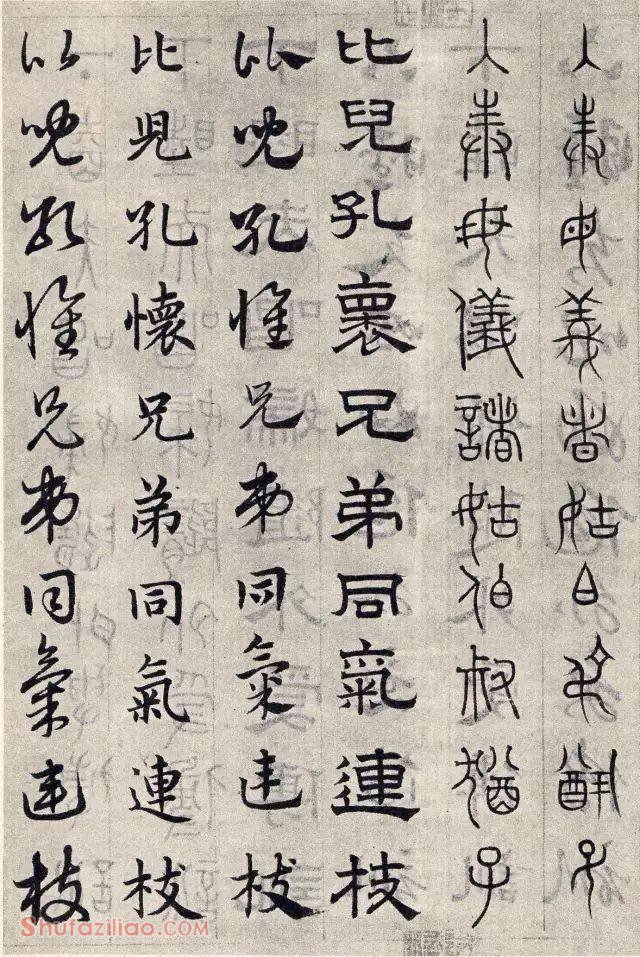 入奉母義者姑白叔猶子
入奉母儀諸姑伯叔猶子
比兒孔褱兄弟同氣連枝
比兒孔懷兄弟同氣連枝
比兒孔懷兄弟同氣連枝
比兒孔懷兄弟同氣連枝
Shufaziliao.COM